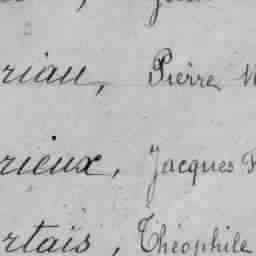 riau, Pierre
rieux, Jacques
rtais, Théophile